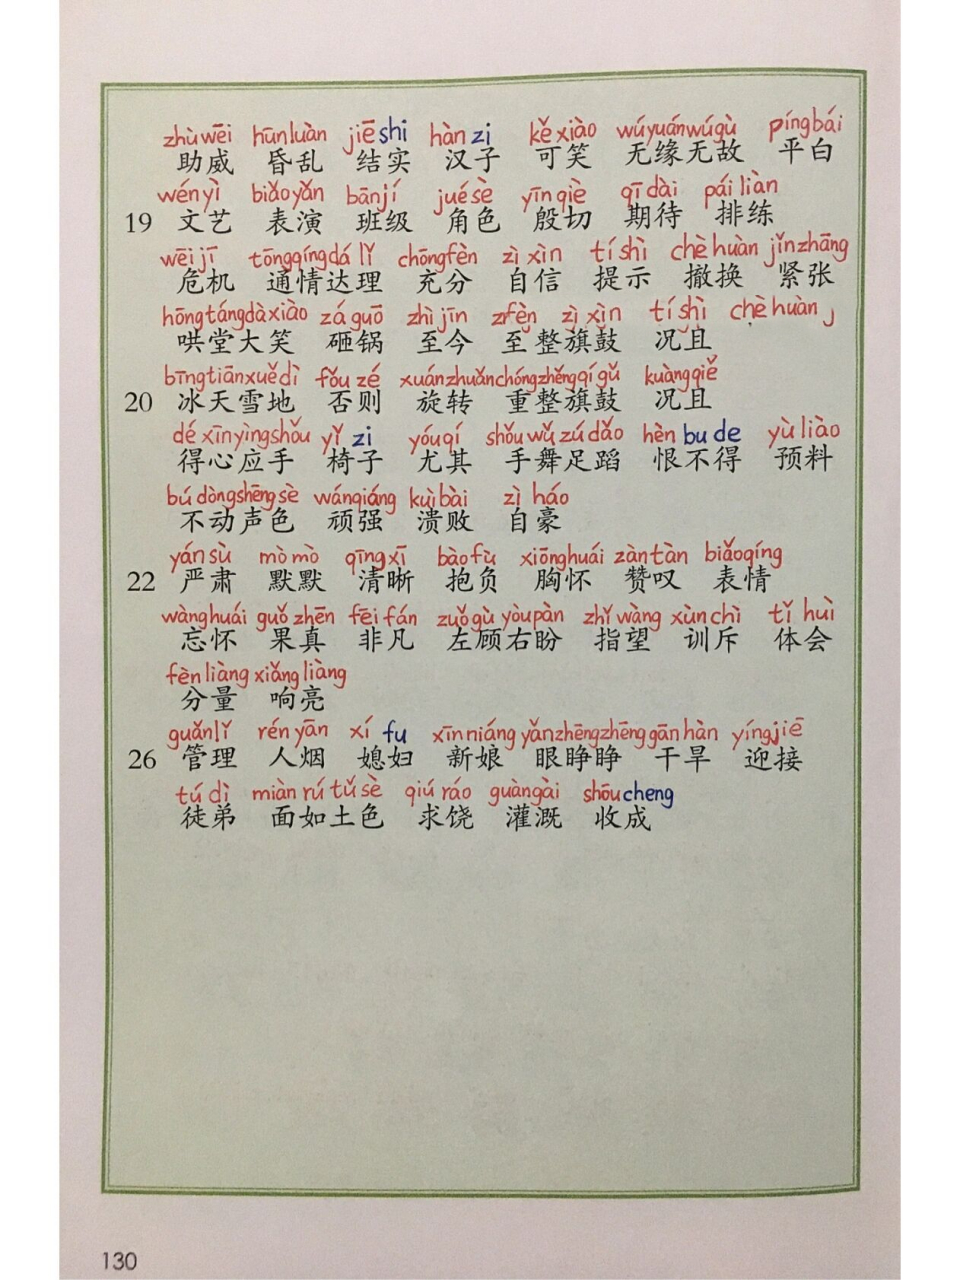 zhùwēi hūnluàn jiēshi hànzi kěxiào wúyuánwúgù píngbái
助威 昏乱 结实 汉子 可笑 无缘无故 平白
wényì biǎoyǎn bānjí juésè yīnqiè qīdài páiliàn
19 文艺 表演 班级 角色 殷切 期待 排练
wēijī tōngqíngdálǐ chōngfèn zìxìn tíshì chèhuàn jǐnzhāng
危机 通情达理 充分 自信 提示 撤换 紧张
hōngtángdàxiào záguō zhìjīn zìfèn zìxìn tíshì chèhuàn j
哄堂大笑 砸锅 至今 至整旗鼓 况且
bīngtiānxuědì fǒuzé xuánzhuǎn chóngzhěngqígǔ kuàngqiě
20 冰天雪地 否则 旋转 重整旗鼓 况且
déxīnyìngshǒu yǐzi yóuqí shǒuwǔzúdǎo hènbude yùliào
得心应手 椅子 尤其 手舞足蹈 恨不得 预料
búdòngshēngsè wánqiáng kuìbài zìháo
不动声色 顽强 溃败 自豪
yánsù mòmò qīngxī bàofù xiōnghuái zàntàn biǎoqíng
22 严肃 默默 清晰 抱负 胸怀 赞叹 表情
wànghuái guǒzhēn fēifán zuǒgùyòupàn zhǐwàng xùnchì tǐhuì
忘怀 果真 非凡 左顾右盼 指望 训斥 体会
fènliàng xiǎngliàng
分量 响亮
guǎnlǐ rényān xífu xīnniáng yǎnzhēngzhēng gānhàn yíngjiē
26 管理 人烟 媳妇 新娘 眼睁睁 干旱 迎接
túdì miànrútǔsè qiúráo guàngài shōucheng
徒弟 面如土色 求饶 灌溉 收成
130